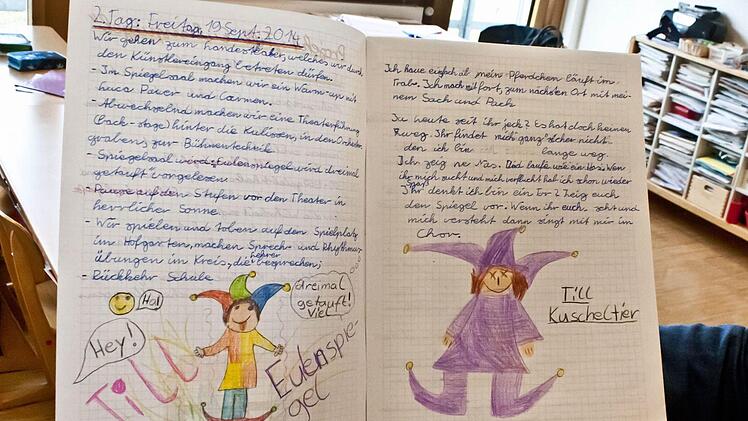 2. Tag: Freitag, 19. Sept. 2014
Wir gehen zum Landestheater, welches wir durch
den Künstlereingang betreten dürfen.
- Im Spiegelsaal machen wir ein Warm-up mit
Luca Pauer und Carmen.
- Abwechselnd machen wir eine Theaterführung
(Back-stage) hinter die Kulissen, in den Orchester
grabens zur Bühnentechnik.
- Spiegelsaal wird Eulenspiegel wird dreimal
getauft vorgelesen
- Pause auf den Stufen vor dem Theater in
herrlicher Sonne
- Wir spielen und toben auf dem Spielplatz
im Hofgarten, machen Sprech- und Rhythmus-
übungen im Kreis, die Lehrer besprechen;
- Rückkehr Schule
Ha!
Hey!
dreimal
getauft!
Viel
Till
Eulenspie-
gel
Ich haue einfach ab mein Pferdchen läuft im
Trab. Ich mach mich fort, zum nächsten Ort mit mei-
nen Sach und Pack
Zu heute seit ihr jeck? Es hat doch keinen
Zweg. Ihr findet mich ganz sicher nicht
den ich bin lange weg.
Ich zeig ne Nas. Und laufe wie ein Has. Wenn
ihr mich sucht und mich verflucht hab ich schon wieder
Spas
Ihr denkt ich bin ein Tor? Zeig euch
den Spiegel vor. Wenn ihr euch seht und
mich versteht dann singt mit mir im
Chor.
Till
Kuscheltier